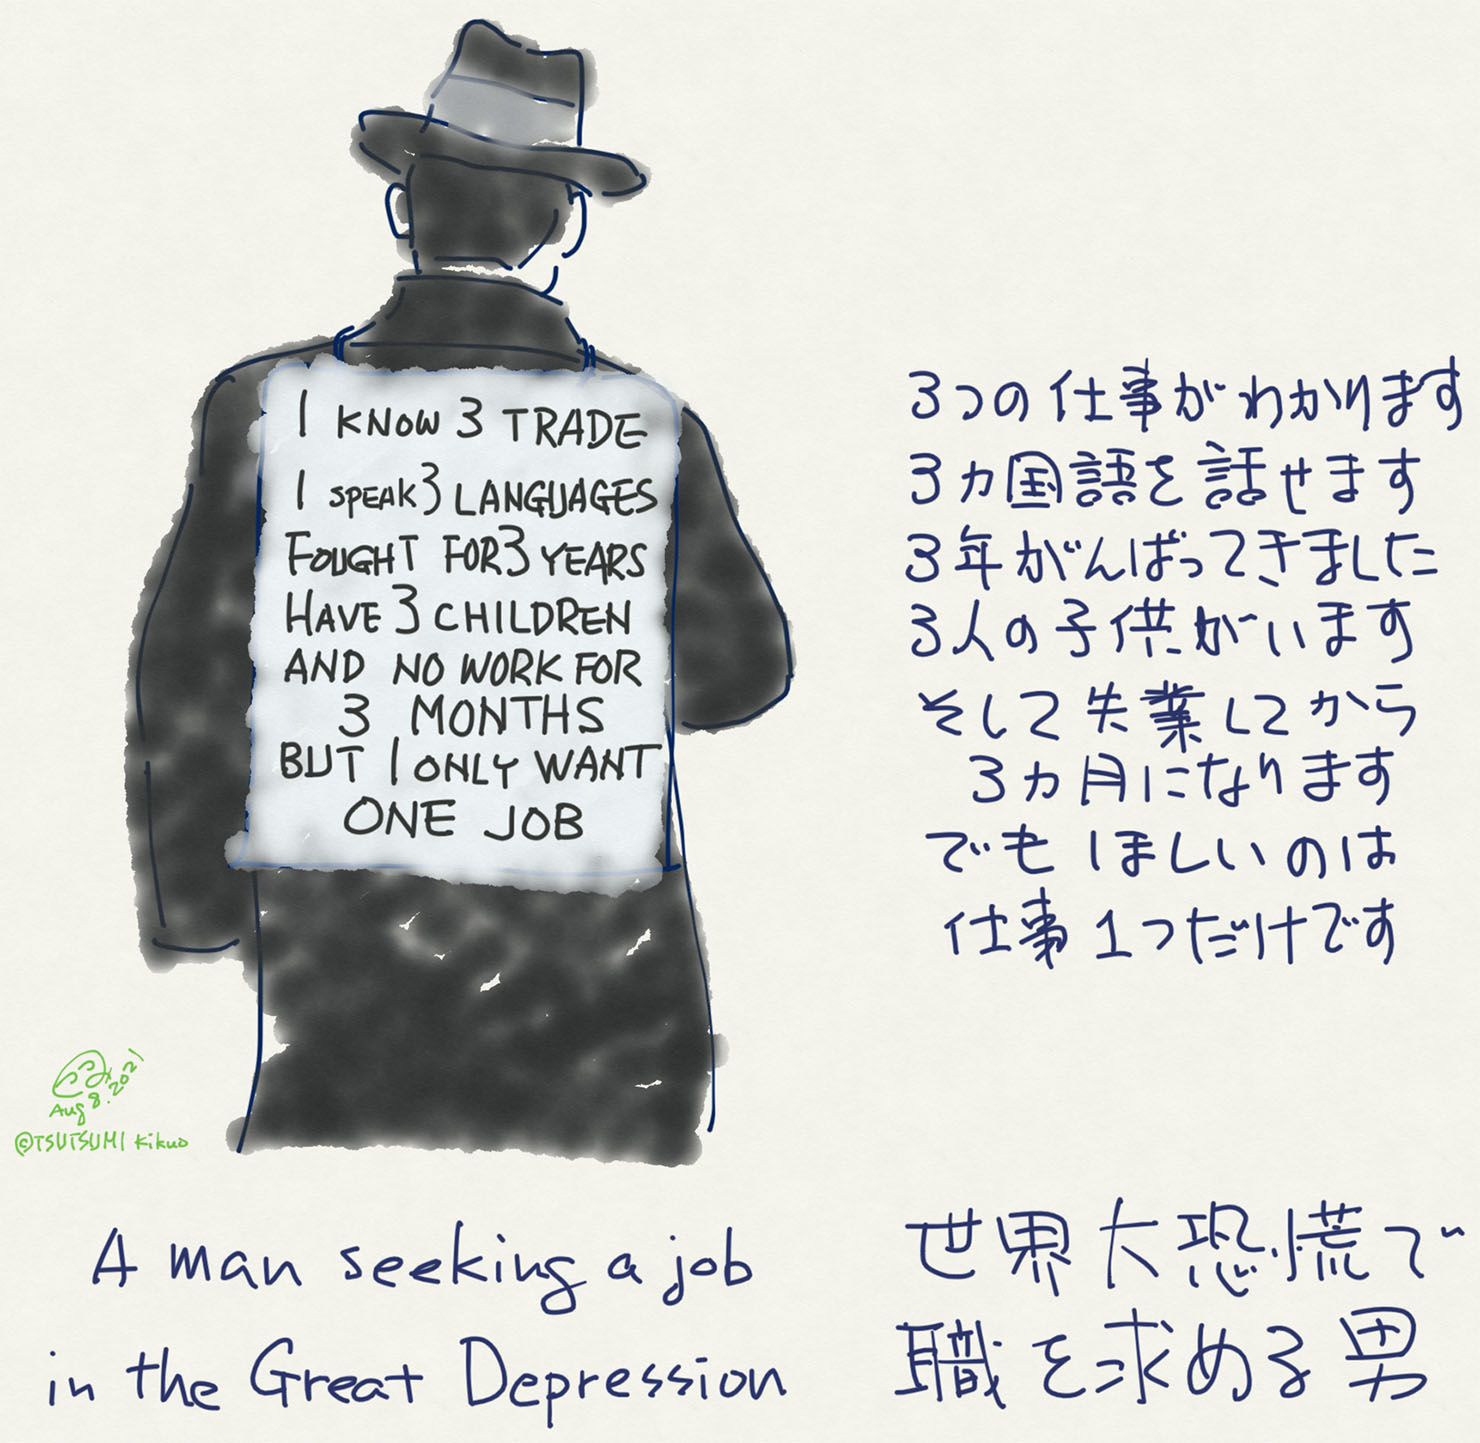 I KNOW 3 TRADE
I SPEAK 3 LANGUAGES
FOUGHT FOR 3 YEARS
HAVE 3 CHILDREN
AND NO WORK FOR
3 MONTHS
BUT I ONLY WANT
ONE JOB
3つの仕事がわかります
3カ国語を話せます
3年がんばってきました
3人の子供がいます
そして失業してから
3カ月になります
でもほしいのは
仕事1つだけです
Aug 8. 2021
©TSUTSUMI Kikuo
A man seeking a job
in the Great Depression
世界大恐慌で
職を求める男